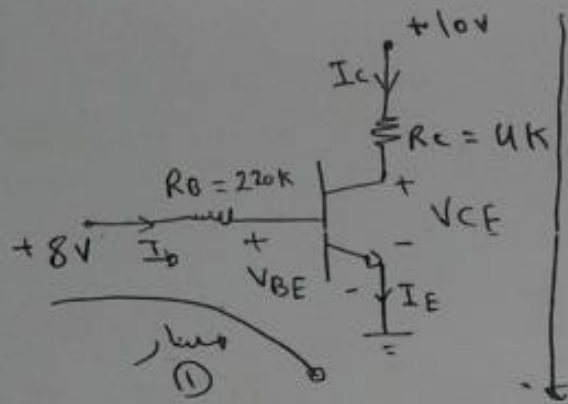 +10V
Ic
Rc = 4K
RB = 220K
+
VCE
+8V
Ib
+
VBE
-
-
IE
مسار
①